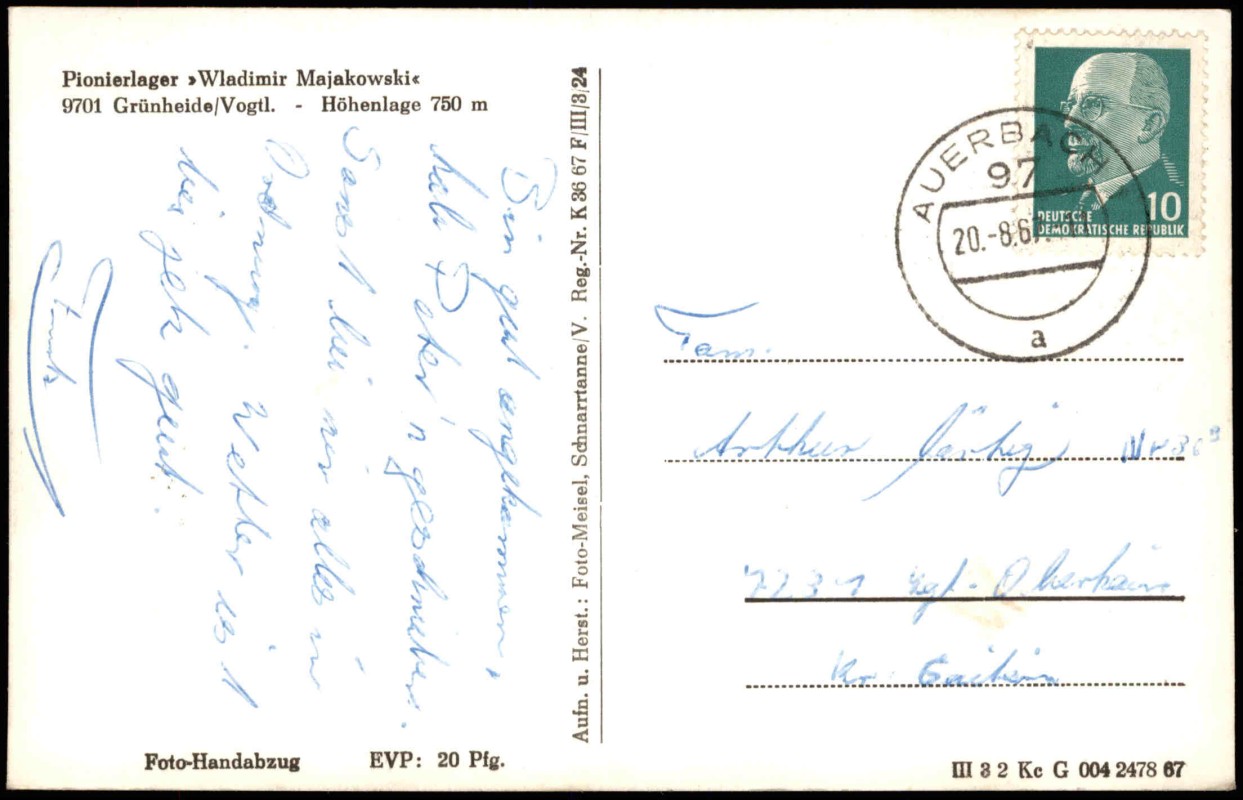 Pionierlager »Wladimir Majakowski«
9701 Grünheide/Vogtl. - Höhenlage 750 m
Bin gut angekommen,
hab Peter'n geschrieben.
Sonst bei mir alles in
Ordnung. Wetter ist
hier sehr gut.
Foto-Handabzug EVP: 20 Pfg.
Aufn. u. Herst.: Foto-Meisel, Schnarrtanne/V. Reg.-Nr. K 36 67 F/III/3/24
AUERBACH
97
20.-8.67.
a
10
DEUTSCHE
DEMOKRATISCHE REPUBLIK
Fam.
Arthur
7231 Oberhain
Kr. Geithain
III 3 2 Kc G 004 2478 67